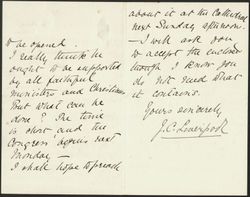 to be opened.
I really think he
ought to be supported
by all faithful
ministers and Christians
But what can be
done? The time
is short and the
Congress opens next
Monday —
I shall hope to preach
about it at the Cathedral
next Sunday afternoon.
— I will ask you
to accept the enclosed
though I know you
do not need what
it contains.
Yours sincerely
J. C. Liverpool